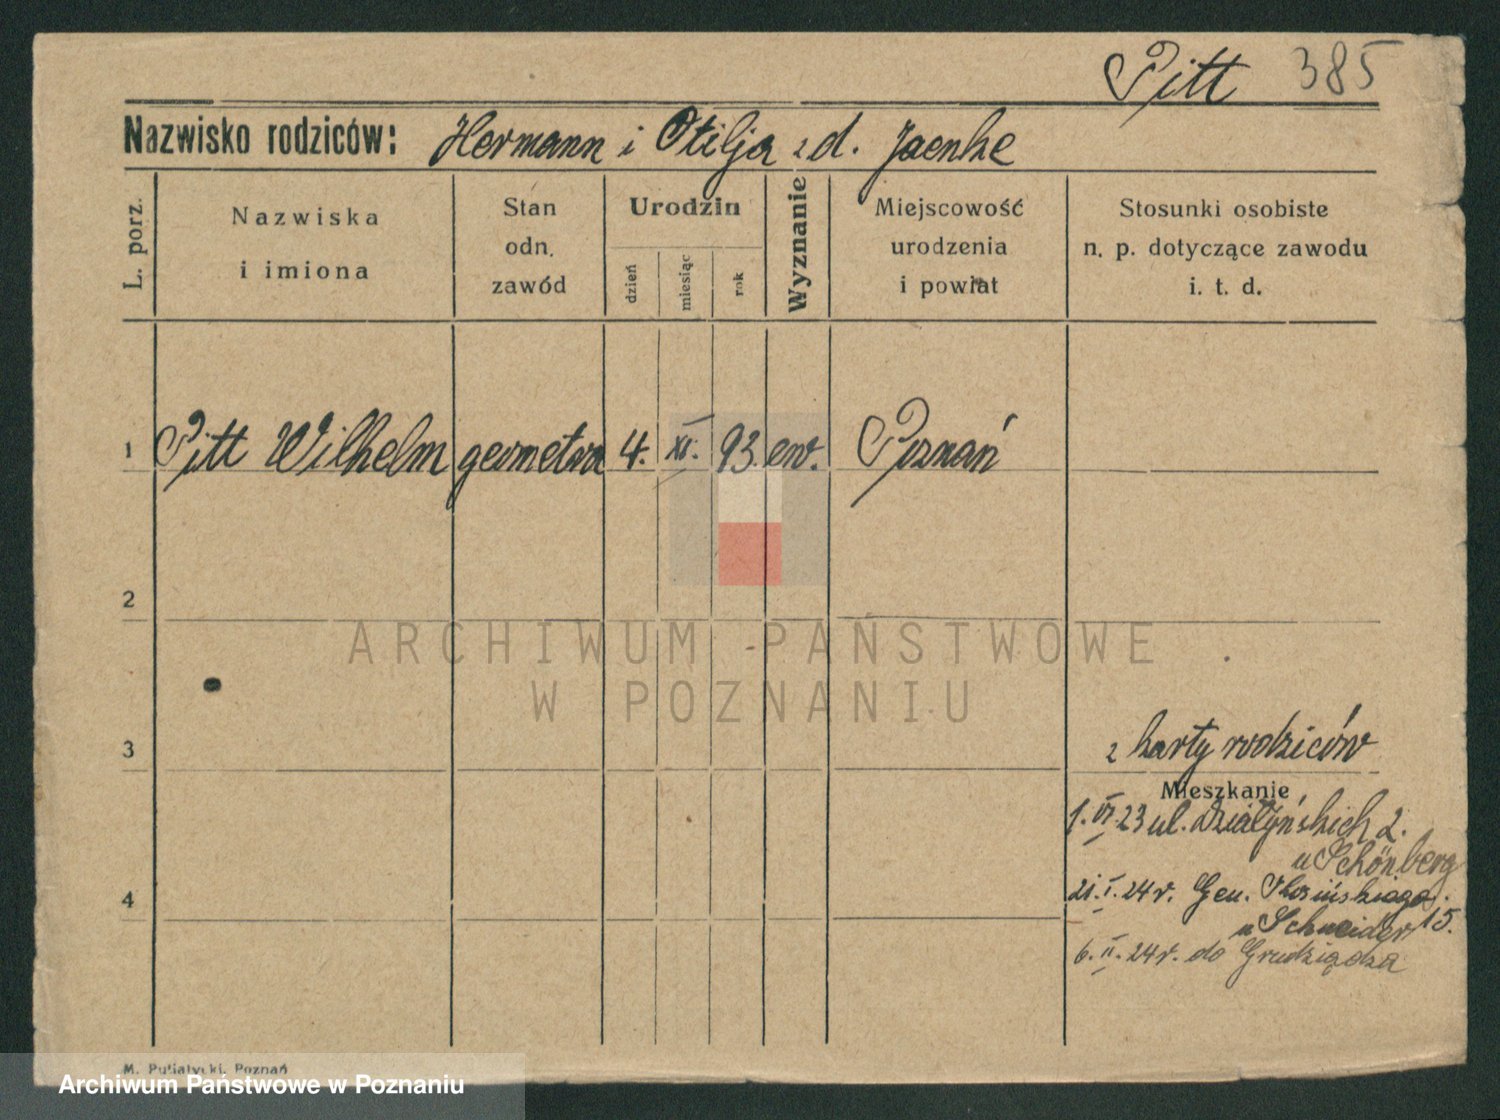 Pitt 385
Nazwisko rodziców: Hermann i Otilja z d. Jaenke
L. porz.
Nazwiska
i imiona
Stan
odn.
zawód
Urodzin
dzień
miesiąc
rok
Wyznanie
Miejscowość
urodzenia
i powiat
Stosunki osobiste
n. p. dotyczące zawodu
i. t. d.
1 Pitt Wilhelm geometra 4. XI. 93. ew. Poznań
2
ARCHIWUM PAŃSTWOWE
W POZNANIU
3
z karty rodziców
Mieszkanie
1. VI. 23 ul. Działyńskich 2.
u Schönberg
4
21. I. 24 r. Gen.
u Schneider 15.
6. II. 24 r. do Grudziądza
M. Putiatycki, Poznań
Archiwum Państwowe w Poznaniu